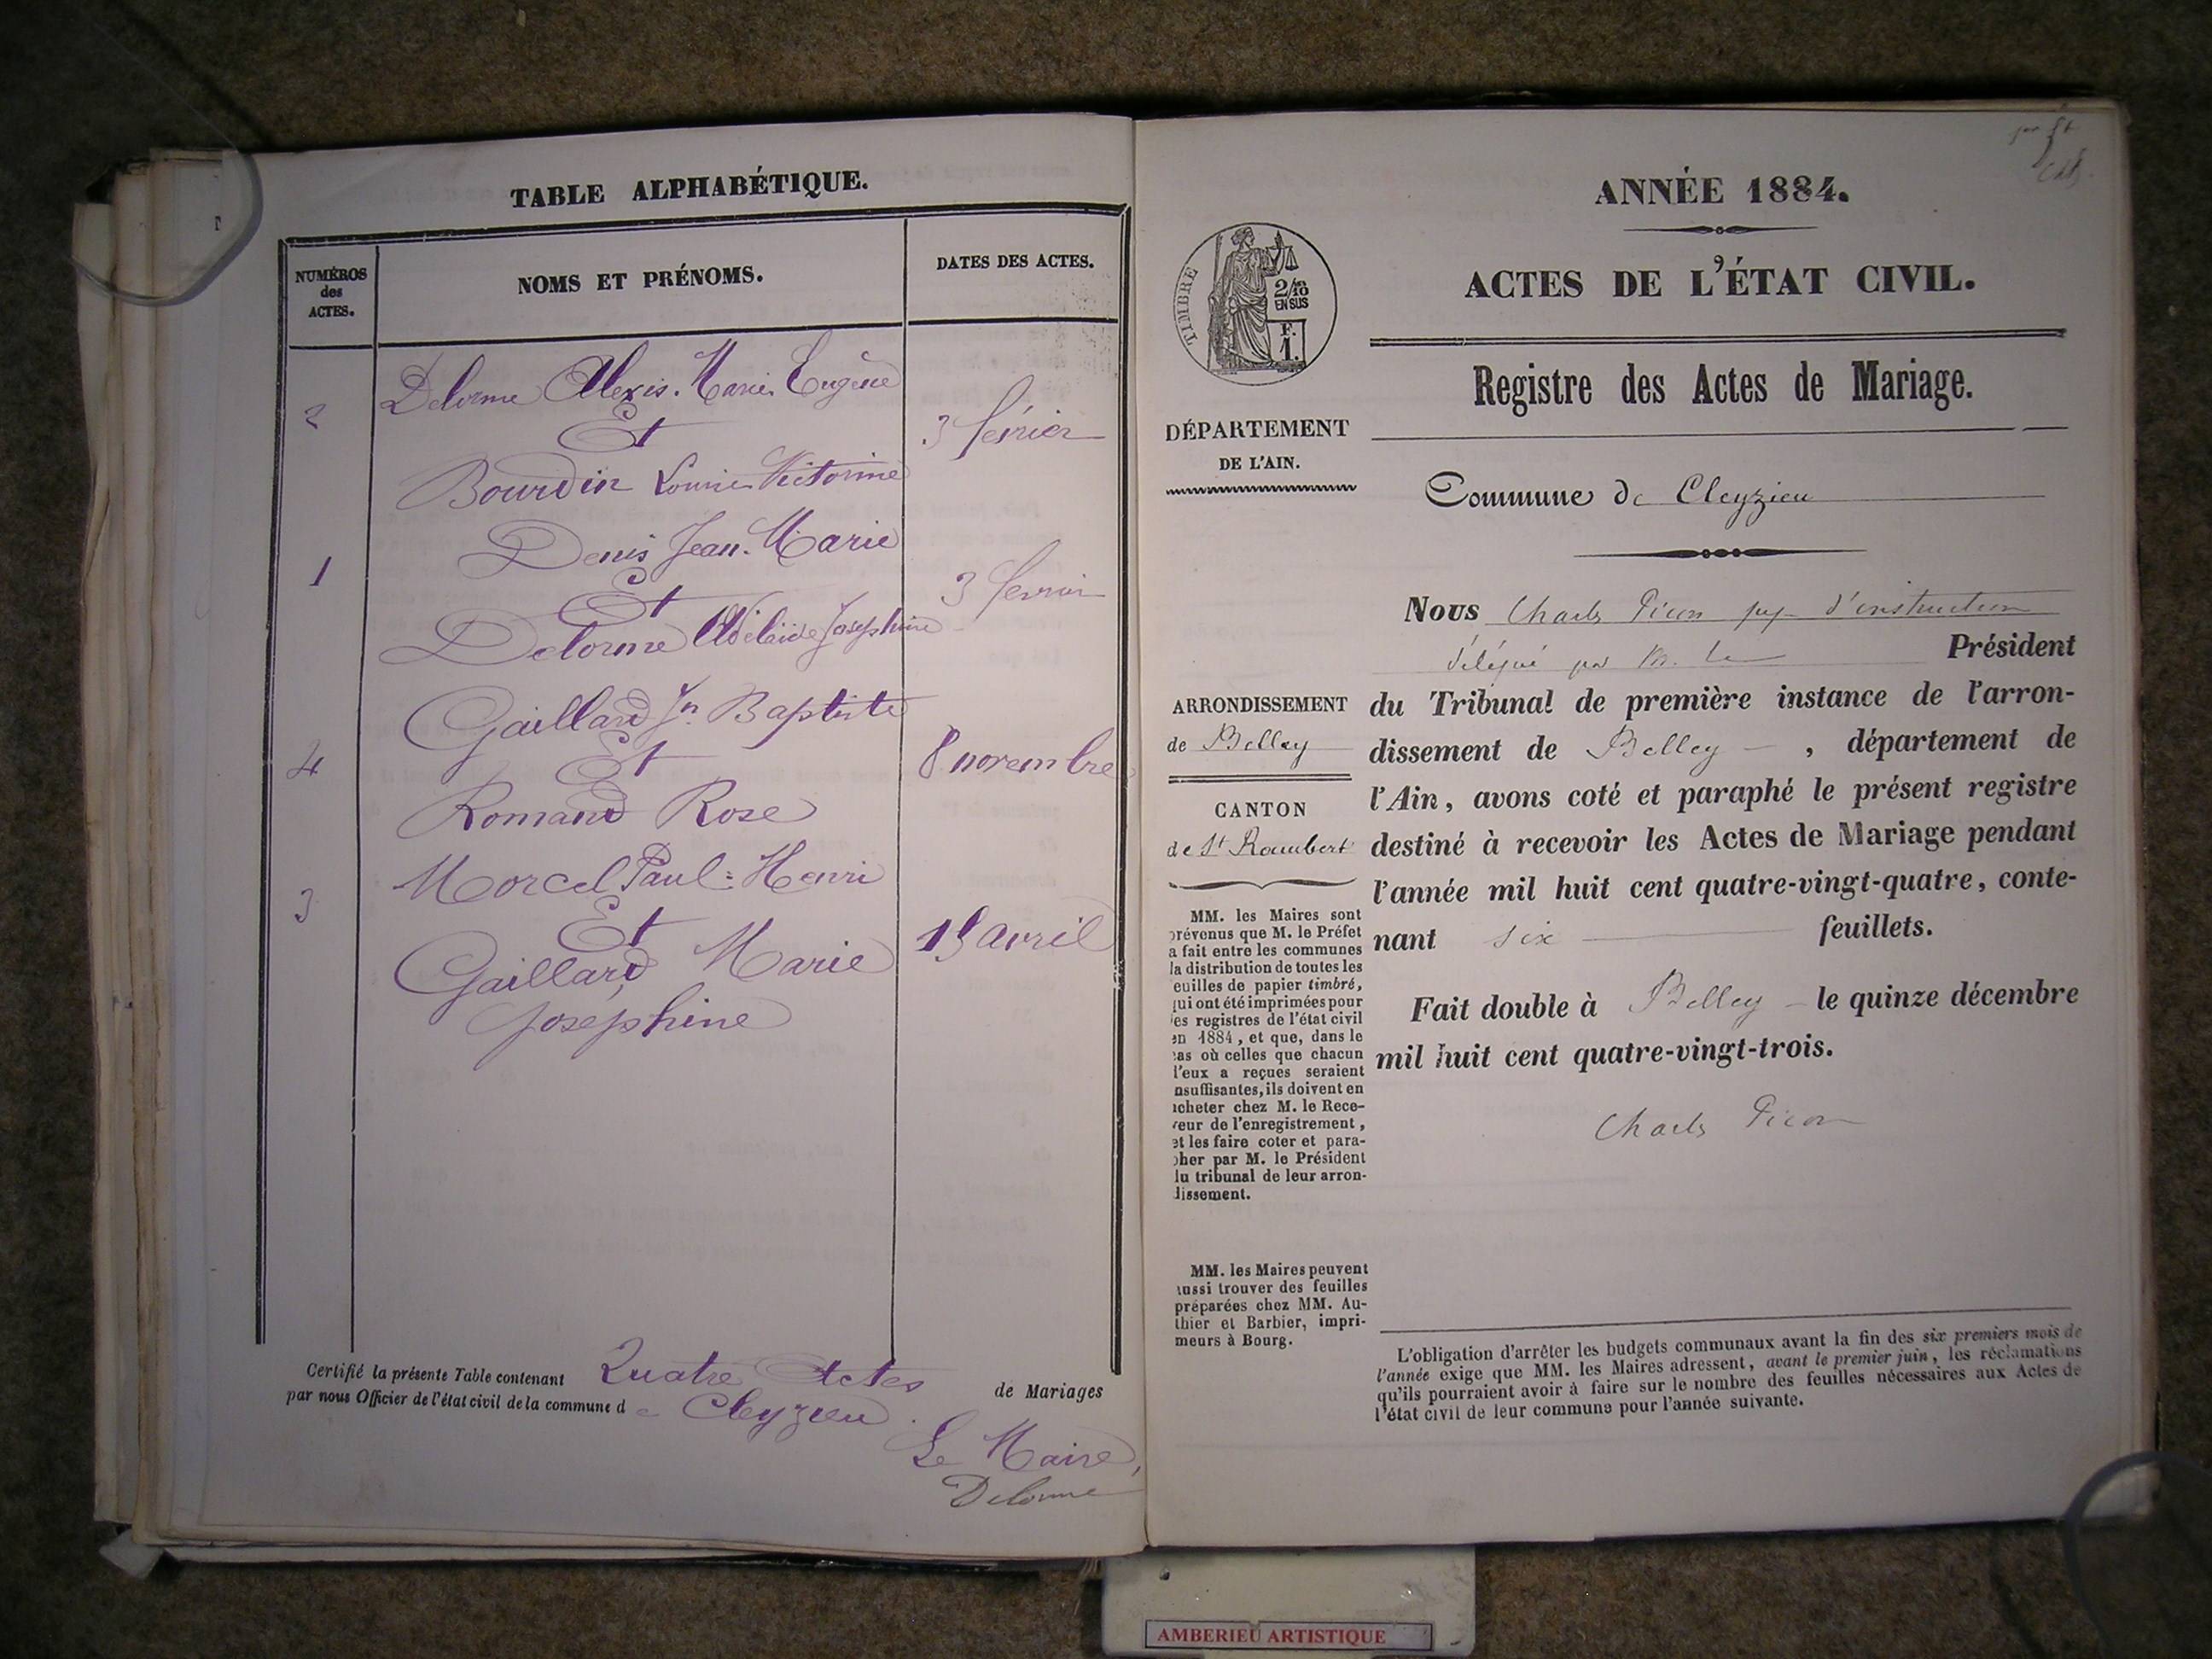 TABLE ALPHABÉTIQUE.
NUMÉROS
des
ACTES.
NOMS ET PRÉNOMS.
DATES DES ACTES.
Delorme Alexis. Marie. Eugène
2
Et
3 février
Bourdin Louise Victorine
Denis Jean. Marie
1
Et
3 fevrier
Delorme Adelaide Josephine
Gaillard Jn Baptiste
4
Et
8 novembre
Romand Rose
Morcel Paul-Henri
3
Et
avril
Gaillard Marie
Joséphine
Certifié la présente Table contenant Quatre Actes de Mariages
par nous Officier de l'état civil de la commune de Cleyzieu.
Le Maire,
Delorme
ANNÉE 1884.
ACTES DE L'ÉTAT CIVIL.
TIMBRE
2/10
EN SUS
F.
1.
Registre des Actes de Mariage.
DÉPARTEMENT
DE L'AIN.
Commune de Cleyzieu
ARRONDISSEMENT
de Belley
CANTON
de St Rambert
MM. les Maires sont
prévenus que M. le Préfet
a fait entre les communes
la distribution de toutes les
euilles de papier timbré,
qui ont été imprimées pour
les registres de l'état civil
en 1884, et que, dans le
cas où celles que chacun
l'eux a reçues seraient
nsuffisantes, ils doivent en
acheter chez M. le Rece-
veur de l'enregistrement,
et les faire coter et para-
pher par M. le Président
lu tribunal de leur arron-
dissement.
MM. les Maires peuvent
aussi trouver des feuilles
préparées chez MM. Au-
thier et Barbier, impri-
meurs à Bourg.
Nous Charles Picon juge d'instruction
délégué par M. le Président
du Tribunal de première instance de l'arron-
dissement de Belley, département de
l'Ain, avons coté et paraphé le présent registre
destiné à recevoir les Actes de Mariage pendant
l'année mil huit cent quatre-vingt-quatre, conte-
nant six feuillets.
Fait double à Belley le quinze décembre
mil huit cent quatre-vingt-trois.
Charles Picon
L'obligation d'arrêter les budgets communaux avant la fin des six premiers mois de
l'année exige que MM. les Maires adressent, avant le premier juin, les réclamations
qu'ils pourraient avoir à faire sur le nombre des feuilles nécessaires aux Actes de
l'état civil de leur commune pour l'année suivante.
AMBERIEU ARTISTIQUE